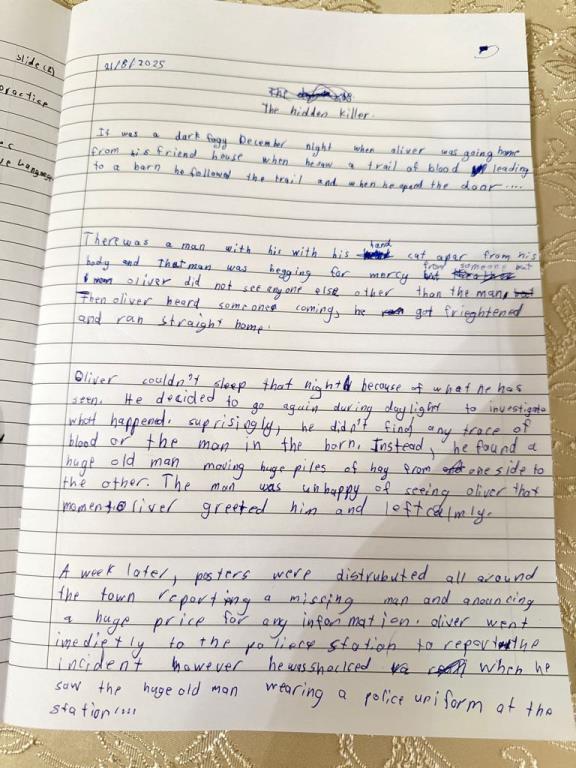 slide(2)
practice
21/8/2025
The
The hidden killer.
It was a dark fogy December night when oliver was going home
from his friend house when he saw a trail of blood leading
to a barn he followed the trail and when he opend the door....
There was a man with his with his hand cut apar from his
body and That man was begging for mercy from someone but
oliver did not see anyone else other than the man,
Then oliver heard someones coming, he got frieghtened
and ran straight home.
Oliver couldn't sleep that night because of what he has
seen. He decided to go again during daylight to investigate
what happened. suprisingly, he didn't find any trace of
blood or the man in the born. Instead, he found a
huge old man moving huge piles of hay from one side to
the other. The man was unhappy of seeing oliver that
moment oliver greeted him and left calmly.
A week later, posters were distrubuted all around
the town reporting a missing man and anouncing
a huge price for any information. oliver went
imedietly to the poliece station to report the
incident however he was shocked when he
saw the huge old man wearing a police uniform at the
station....